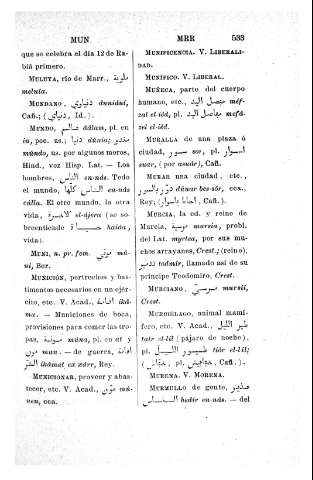 MUN. MRR 533
que se celebra el día 12 de Rabiâ primero.
MULUYA, río de Marr., ملوية
meluia.
MUNDANO, دنياوي duniauí,
Cañ.; (دنياوي, Id.).
MUNDO, عالم âálem, pl. en
in, poc. us.; دنيا dúnia; مندو
múndo, us. por algunos moros,
Hind, voz Hisp. Lat. — Los
hombres, الناس en-nás. Todo
el mundo, الناس كلها en-nás
cúlla. El otro mundo, la otra
vida, الاخرة el-ájera (se sobreentiende حياة haiáa,
vida).
MUNI, n. pr. fem. مونى múni, Ber.
MUNICIÓN, pertrechos y bastimentos necesarios en un ejército, etc. V. Acad.,
ma. — Municiones de boca,
provisiones para comer las tropas, مونة múna, pl. en at y
مون mun. — de guerra, اقامة
الشر ikámat ex xárr, Rey.
MUNICIONAR, proveer y abastecer, etc. V. Acad., مون múnen, cca.
MUNIFICENCIA. V. LIBERALIDAD.
MUNÍFICO. V. LIBERAL.
MUÑECA, parte del cuerpo
humano, etc., مفصل اليد méfzal el-iéd, pl. مفاصل اليد mefázel el-iéd.
MURALLA de una plaza ó
ciudad, سور sor, pl. اسوار
suar, (por asuár), Cañ.
MURAR una ciudad, etc.,
دور بالسور dúuar bes-sór, cca.,
Rey; (احاط باسوار, Cañ.).
MURCIA, la cd. y reino de
Murcia, مرسية mursia, probl.
del Lat. myrtea, por sus muchos arrayanes, Crest.; (reino),
تدمير tadmir, llamado así de su
príncipe Teodomiro, Crest.
MURCIANO, مرسيّ mursíi,
Crest.
MURCIÉLAGO, animal mamífero, etc. V. Acad., طير الليل
tair el-líl (pájaro de noche),
pl. طيور الليل tiúr el-líl;
(خفاش, pl. خفافيش, Cañ.).
MURENA. V. MORENA.
MURMULLO de gente, هدير
الناس hedir en-nás. — del